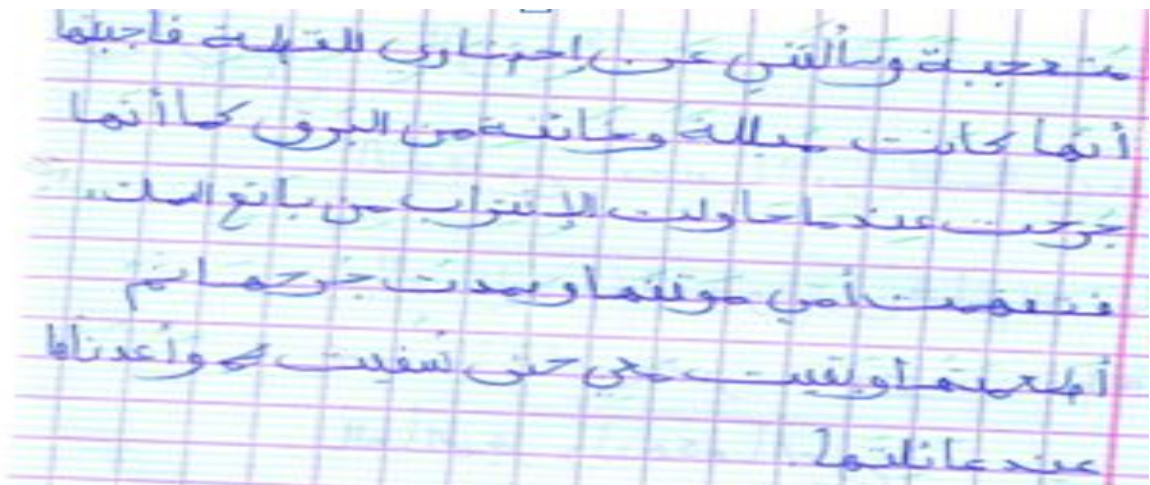 متعجبة وسألتني عن إحضاري للقطة فأجبتها
أنها كانت مبللة وخائفة من البرق كما أنها
جرحت عندما حاولت الإقتراب من بائع السمك.
فتفهمت أمي موقفها وضمدت جرحها ثم
أطعمتها وبقيت معي حتى شفيت وأعدناها
عند عائلتها.